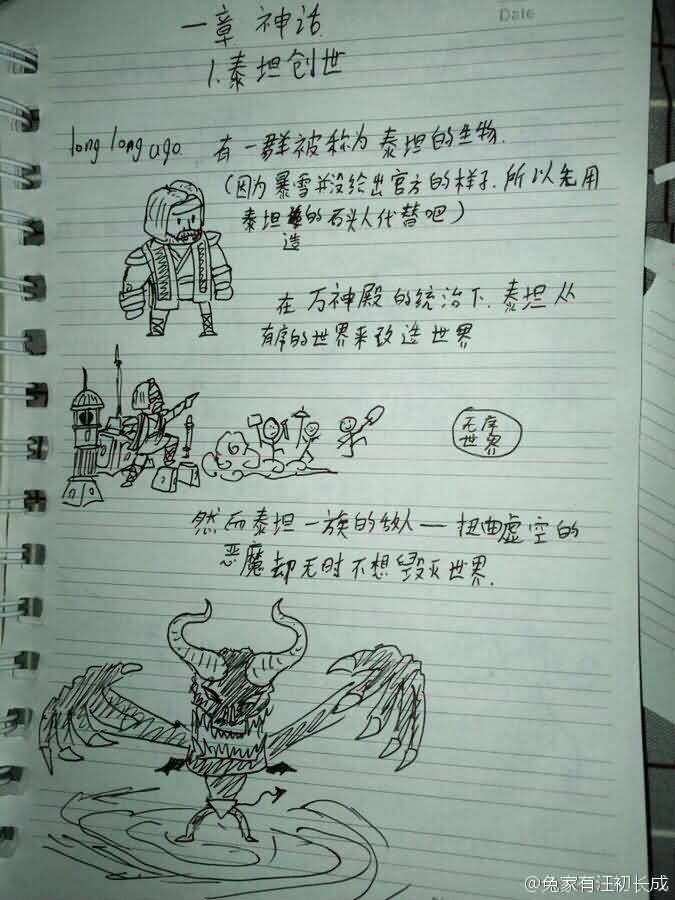 Date
一章 神话
1.泰坦创世
long long ago. 有一群被称为泰坦的生物.
(因为暴雪并没给出官方的样子.所以先用
泰坦造的石头人代替吧)
在万神殿的统治下.泰坦从
有序的世界来改造世界
无序
世界
然而泰坦一族的敌人—扭曲虚空的
恶魔却无时不想毁灭世界.
@兔家有汪初长成